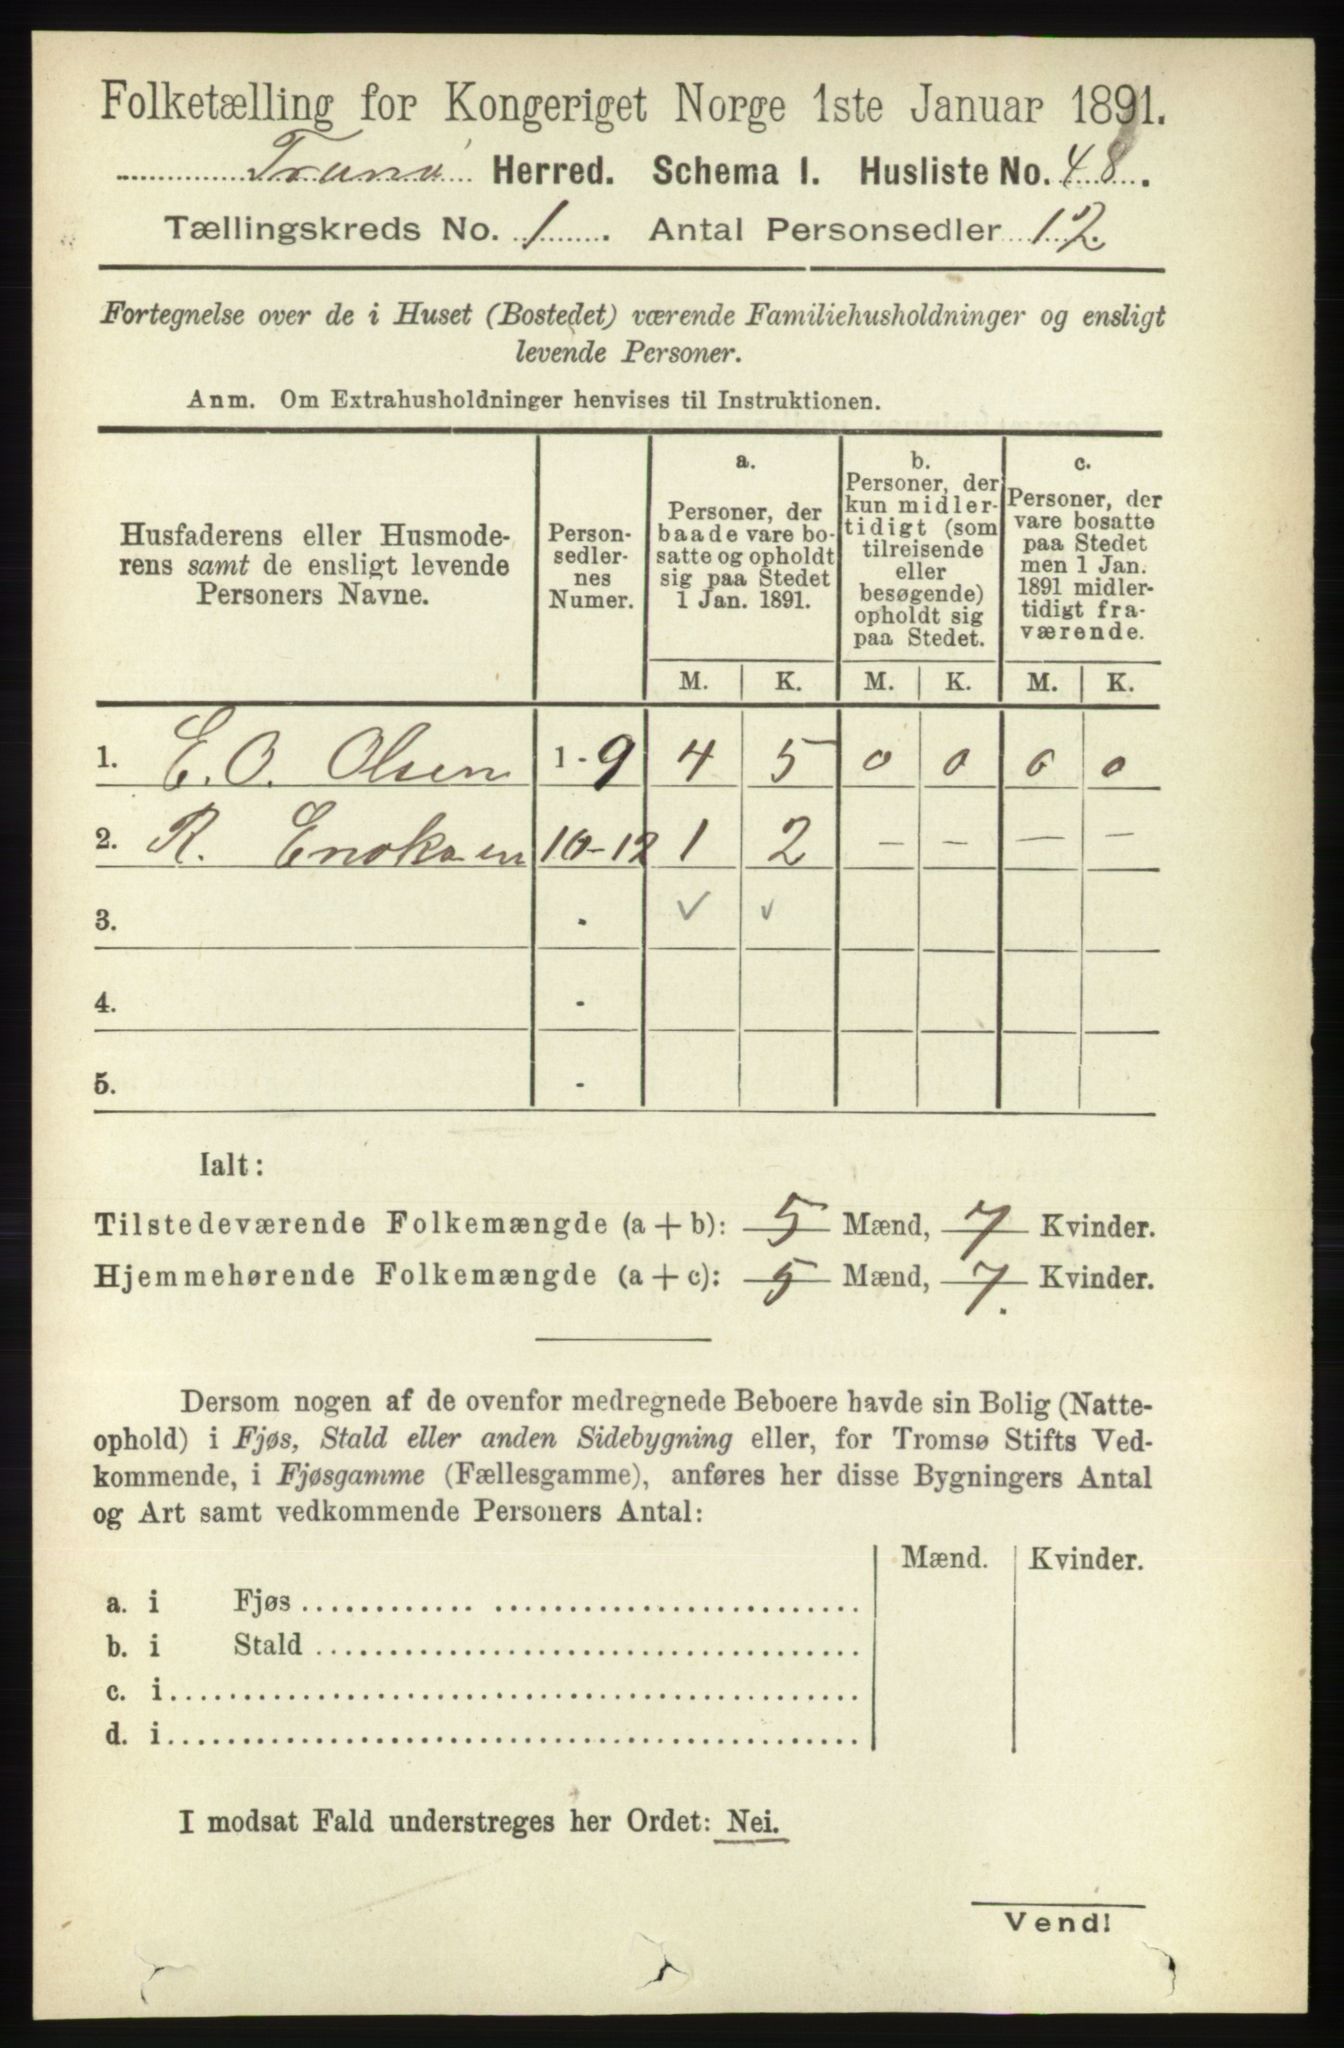 Folketælling for Kongeriget Norge 1ste Januar 1891.
Tranø Herred. Schema I. Husliste No. 48.
Tællingskreds No. 1. Antal Personsedler 12.
Fortegnelse over de i Huset (Bostedet) værende Familiehusholdninger og ensligt
levende Personer.
Anm. Om Extrahusholdninger henvises til Instruktionen.
Husfaderens eller Husmode-
rens samt de ensligt levende
Personers Navne.
Person-
sedler-
nes
Numer.
a.
Personer, der
baade vare bo-
satte og opholdt
sig paa Stedet
1 Jan. 1891.
b.
Personer, der
kun midler-
tidigt (som
tilreisende
eller
besøgende)
opholdt sig
paa Stedet.
c.
Personer, der
vare bosatte
paa Stedet
men 1 Jan.
1891 midler-
tidigt fra-
værende.
M. K. M. K. M. K.
1. E. O. Olsen 1-9 4 5 0 0 0 0
2. R. Enoksen 10-12 1 2 - - - -
3. - ✓ ✓
4. -
5. -
Ialt:
Tilstedeværende Folkemængde (a + b): 5 Mænd, 7 Kvinder.
Hjemmehørende Folkemængde (a + c): 5 Mænd, 7. Kvinder.
Dersom nogen af de ovenfor medregnede Beboere havde sin Bolig (Natte-
ophold) i Fjøs, Stald eller anden Sidebygning eller, for Tromsø Stifts Ved-
kommende, i Fjøsgamme (Fællesgamme), anføres her disse Bygningers Antal
og Art samt vedkommende Personers Antal:
Mænd. Kvinder.
a. i Fjøs
b. i Stald
c. i
d. i
I modsat Fald understreges her Ordet: Nei.
Vend!